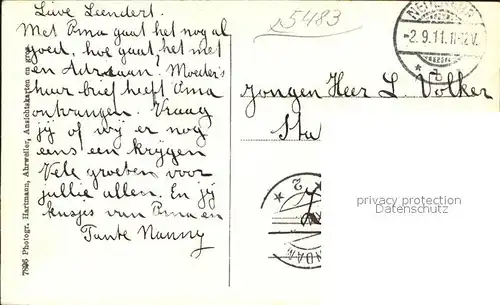 Lieve Leendert.
Met Oma gaat het nog al
goed, hoe gaat het met
en Adriaan? Moeder's
haar brief heeft Oma
ontvangen. Vraag
jij of wij er nog
eens een krijgen
Vele groeten voor
jullie allen. En jij
kusjes van Oma en
Tante Nanny
7896 Photogr. Hartmann, Ahrweiler, Ansichtskarten en gros
5483
-2.9.11.11-12V.
Jongen Heer L. Volker
Sta
DAM
privacy protection
DatenSchutz